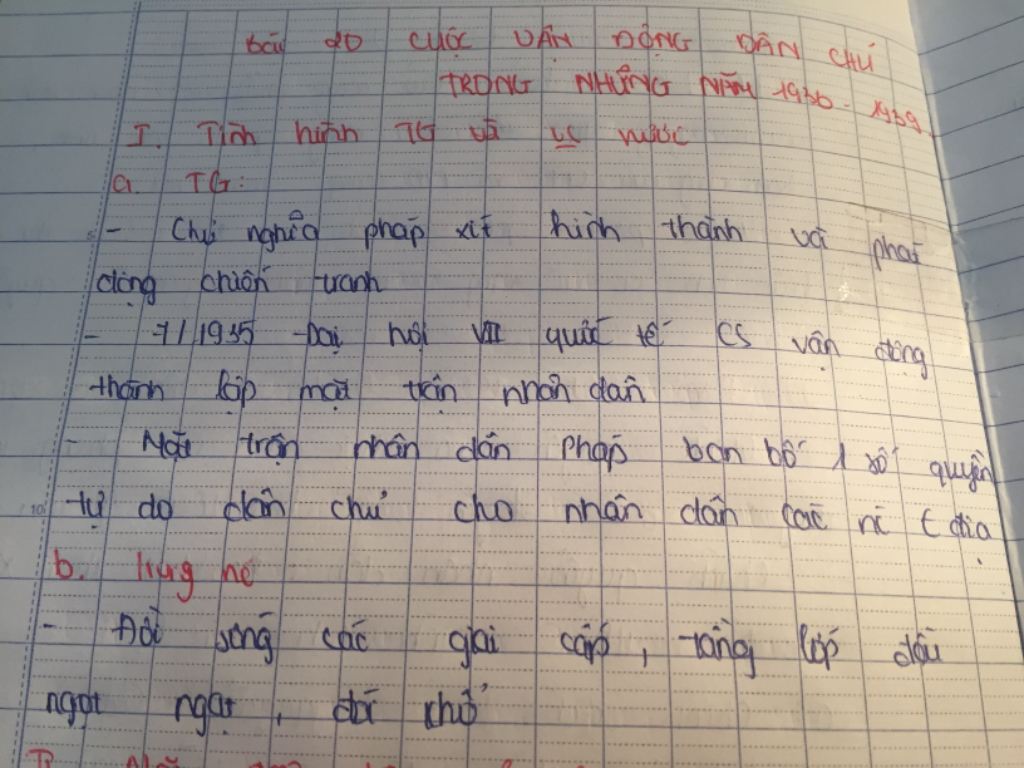 bài 20 CUỘC VẬN ĐỘNG DÂN CHỦ
TRONG NHỮNG NĂM 1936 - 1939
I. Tình hình TG và nước
a. TG:
- Chủ nghĩa pháp xít hình thành và phát
động chiến tranh
- 7/1935 Đại hội VII quốc tế CS vận động
thành lập mặt trận nhân dân
- Mặt trận nhân dân Pháp ban bố 1 số quyền
tự do dân chủ cho nhân dân các nc tđịa
b.
- Đời sống các giai cấp, tầng lớp đều
ngọt ngạt, đói khổ